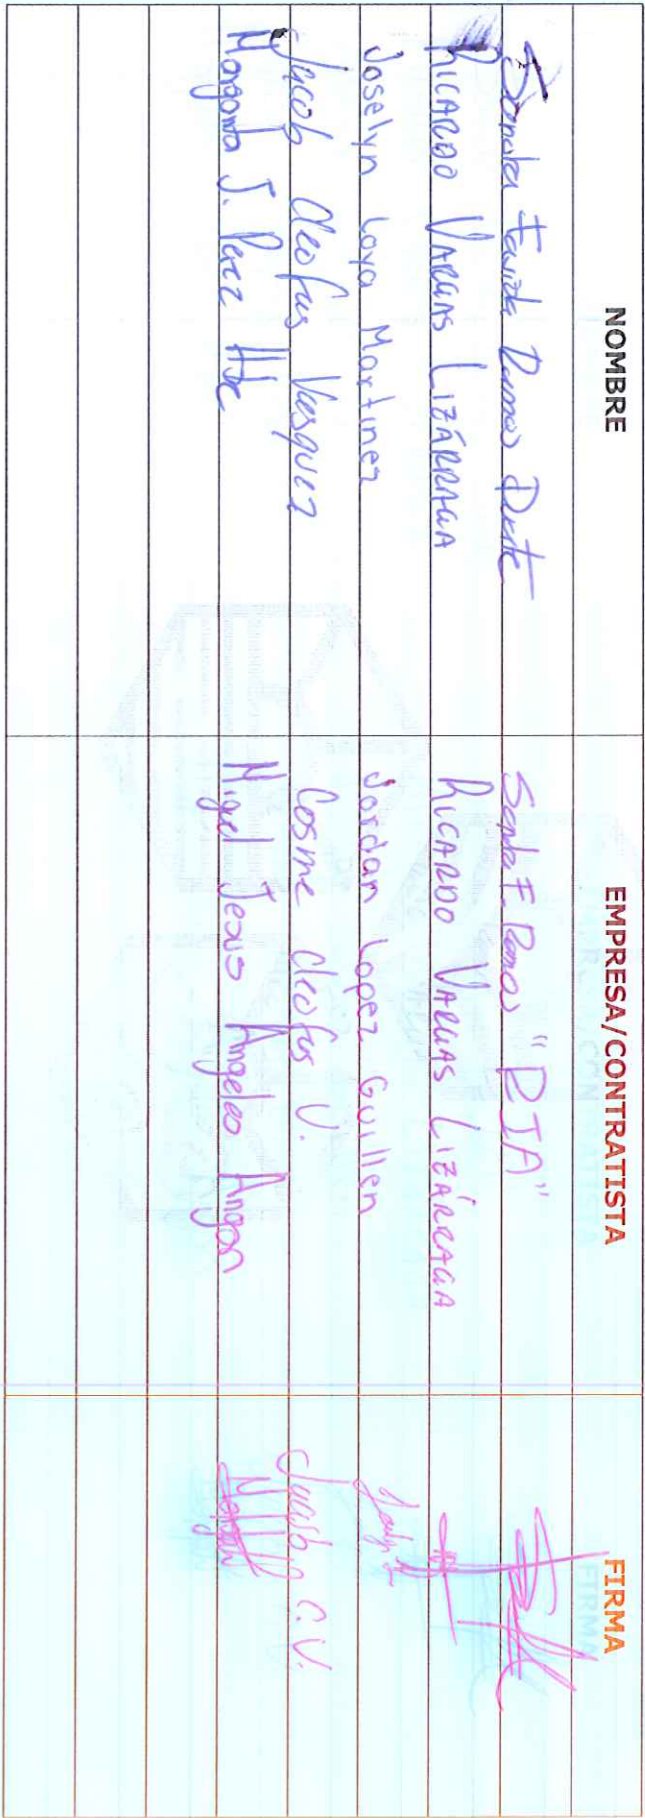 NOMBRE EMPRESA/CONTRATISTA FIRMA
Ramos Duarte Sandra F. Ramos "DIA"
RICARDO VARGAS LIZÁRRAGA RICARDO VARGAS LIZÁRRAGA
Joselyn Loya Martinez Jordan Lopez Guillen
Jacob Cleofas Vasquez Cosme Cleofas V. Jacob C.V.
Margarita J. Perez Miguel Jesus Angeles Angon